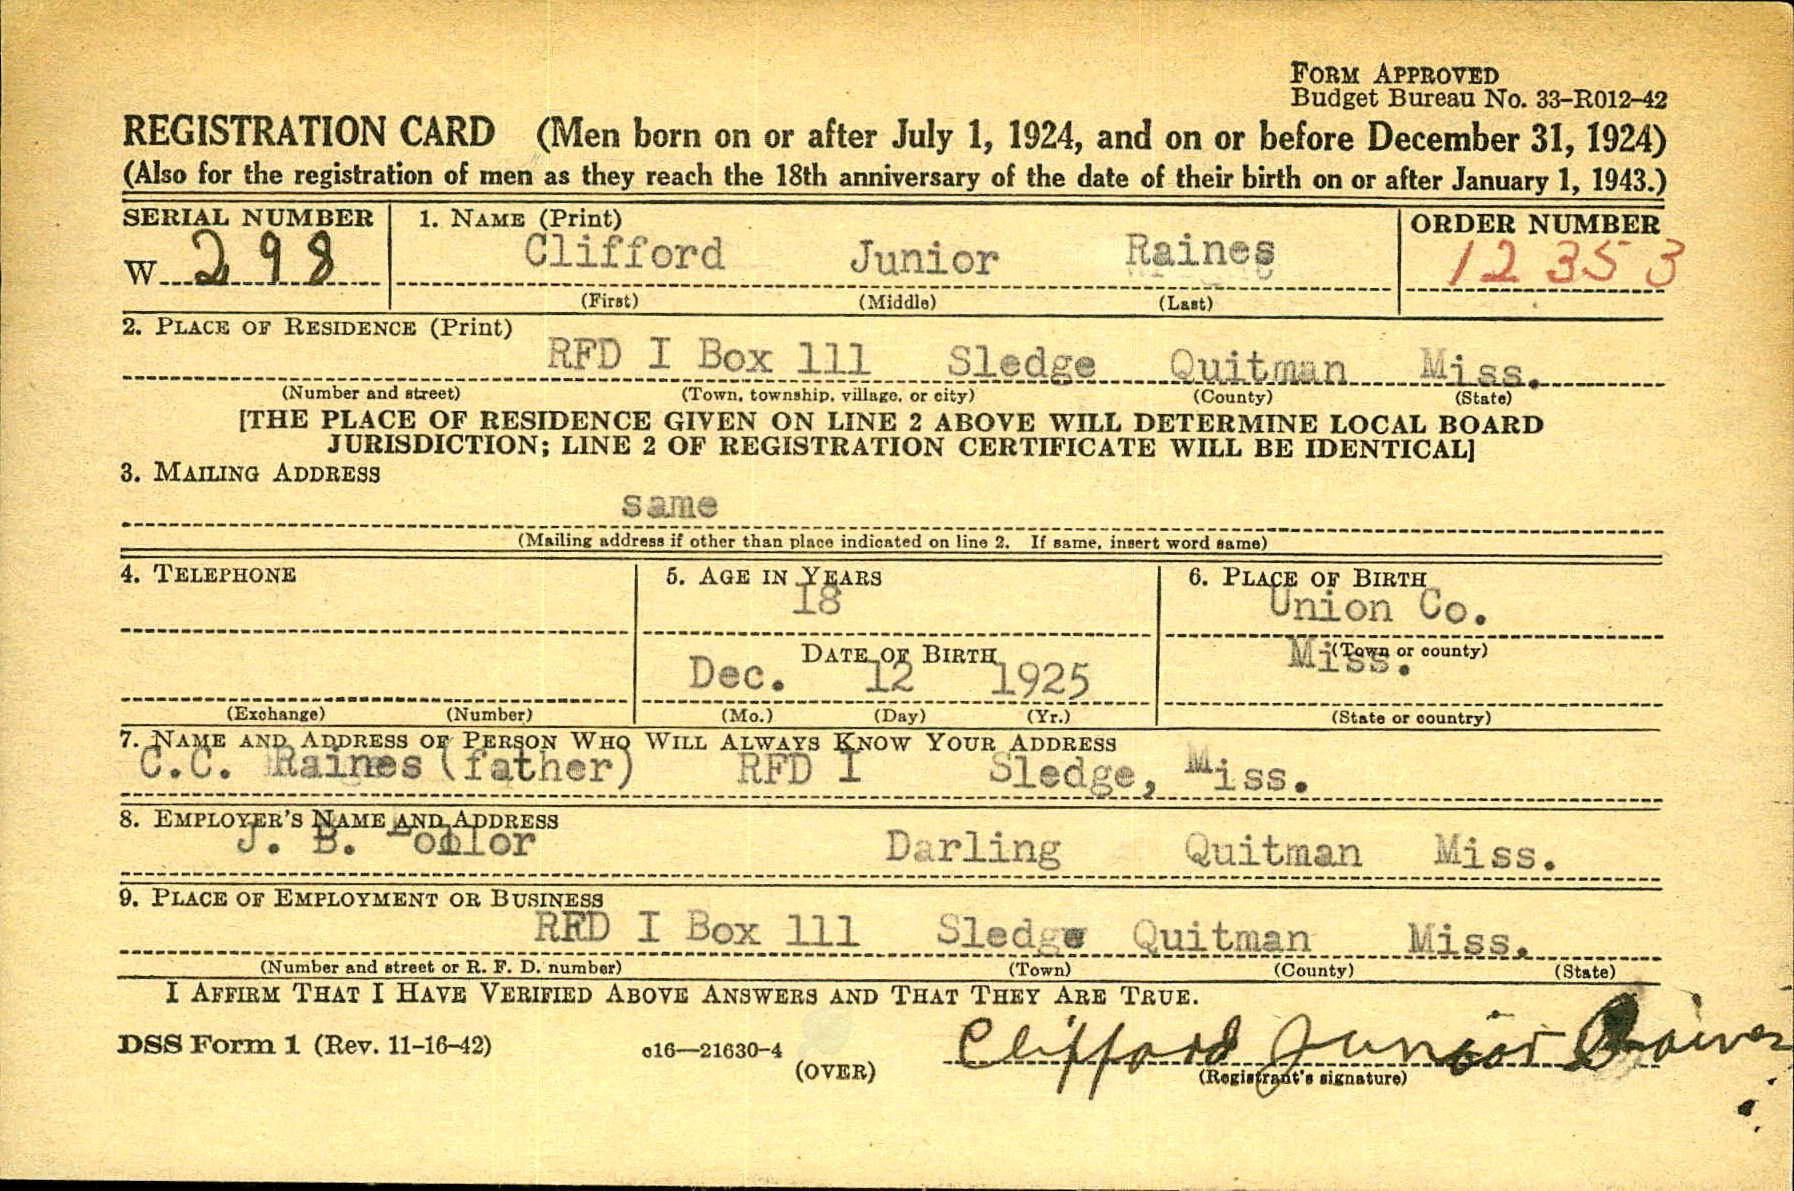 FORM APPROVED
Budget Bureau No. 33-R012-42
REGISTRATION CARD (Men born on or after July 1, 1924, and on or before December 31, 1924)
(Also for the registration of men as they reach the 18th anniversary of the date of their birth on or after January 1, 1943.)
SERIAL NUMBER 1. NAME (Print) ORDER NUMBER
W 298 Clifford Junior Raines 12353
(First) (Middle) (Last)
2. PLACE OF RESIDENCE (Print)
RFD I Box 111 Sledge Quitman Miss.
(Number and street) (Town, township, village, or city) (County) (State)
[THE PLACE OF RESIDENCE GIVEN ON LINE 2 ABOVE WILL DETERMINE LOCAL BOARD
JURISDICTION; LINE 2 OF REGISTRATION CERTIFICATE WILL BE IDENTICAL]
3. MAILING ADDRESS
same
(Mailing address if other than place indicated on line 2. If same, insert word same)
4. TELEPHONE 5. AGE IN YEARS 6. PLACE OF BIRTH
18 Union Co.
DATE OF BIRTH (Town or county)
Dec. 12 1925 Miss.
(Exchange) (Number) (Mo.) (Day) (Yr.) (State or country)
7. NAME AND ADDRESS OF PERSON WHO WILL ALWAYS KNOW YOUR ADDRESS
C.C. Raines (father) RFD I Sledge, Miss.
8. EMPLOYER'S NAME AND ADDRESS
J. B. Darling Quitman Miss.
9. PLACE OF EMPLOYMENT OR BUSINESS
RFD I Box 111 Sledge Quitman Miss.
(Number and street or R. F. D. number) (Town) (County) (State)
I AFFIRM THAT I HAVE VERIFIED ABOVE ANSWERS AND THAT THEY ARE TRUE.
DSS Form 1 (Rev. 11-16-42) c16—21630-4 (OVER) Clifford Junior Raines
(Registrant's signature)